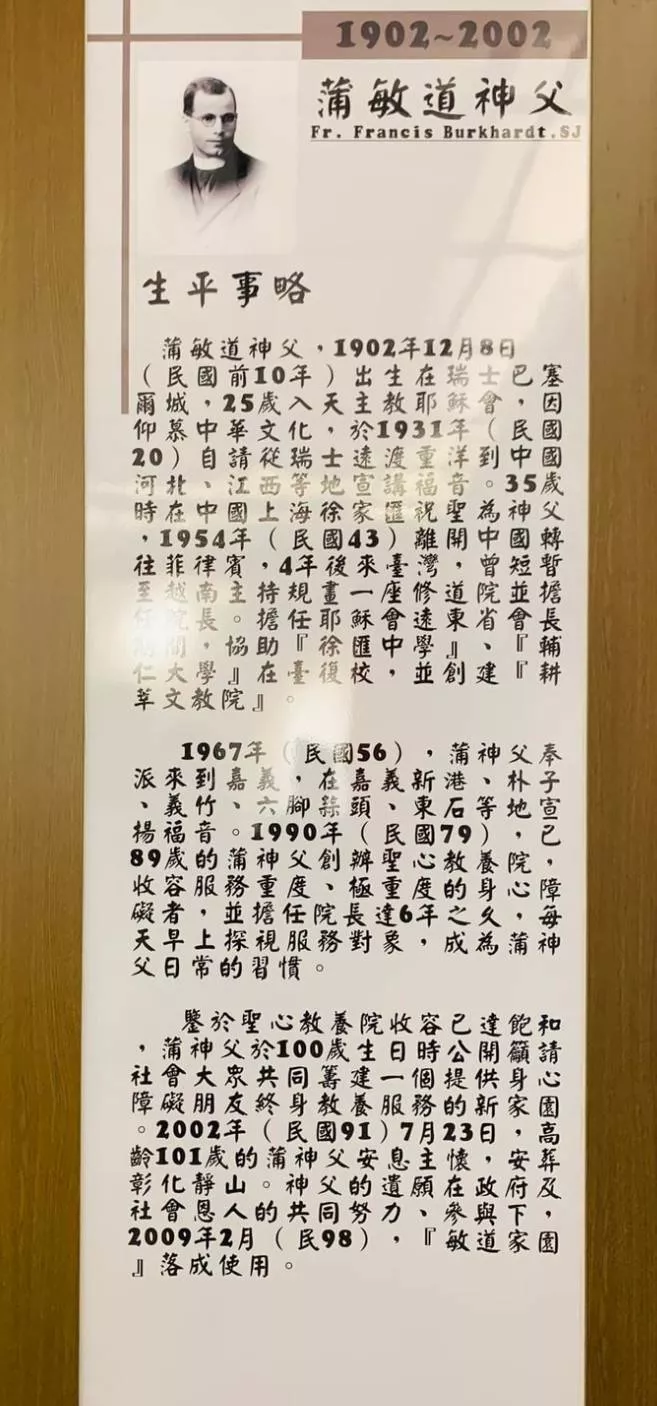 1902~2002
蒲敏道神父
Fr. Francis Burkhardt.SJ
生平事略
蒲敏道神父，1902年12月8日
（民國前10年）出生在瑞士巴塞
爾城，25歲入天主教耶穌會，因
仰慕中華文化，於1931年（民國
20）自請從瑞士遠渡重洋到中國
河北、江西等地宣講福音。35歲
時在中國上海徐家匯祝聖為神父
，1954年（民國43）離開中國轉
往菲律賓，4年後來臺灣，曾短暫
至越南主持規畫一座修道院並擔
任院長。擔任耶穌會遠東省會長
期間，協助『徐匯中學』、『輔
仁大學』在臺復校，並創建『耕
莘文教院』。
1967年（民國56），蒲神父奉
派來到嘉義，在嘉義新港、朴子
、義竹、六腳蒜頭、東石等地宣
揚福音。1990年（民國79），已
89歲的蒲神父創辦聖心教養院，
收容服務重度、極重度的身心障
礙者，並擔任院長達6年之久，每
天早上探視服務對象，成為蒲神
父日常的習慣。
鑒於聖心教養院收容已達飽和
，蒲神父於100歲生日時公開籲請
社會大眾共同籌建一個提供身心
障礙朋友終身教養服務的新家園
。2002年（民國91）7月23日，高
齡101歲的蒲神父安息主懷，安葬
彰化靜山。神父的遺願在政府及
社會恩人的共同努力、參與下，
2009年2月（民98），『敏道家園
』落成使用。